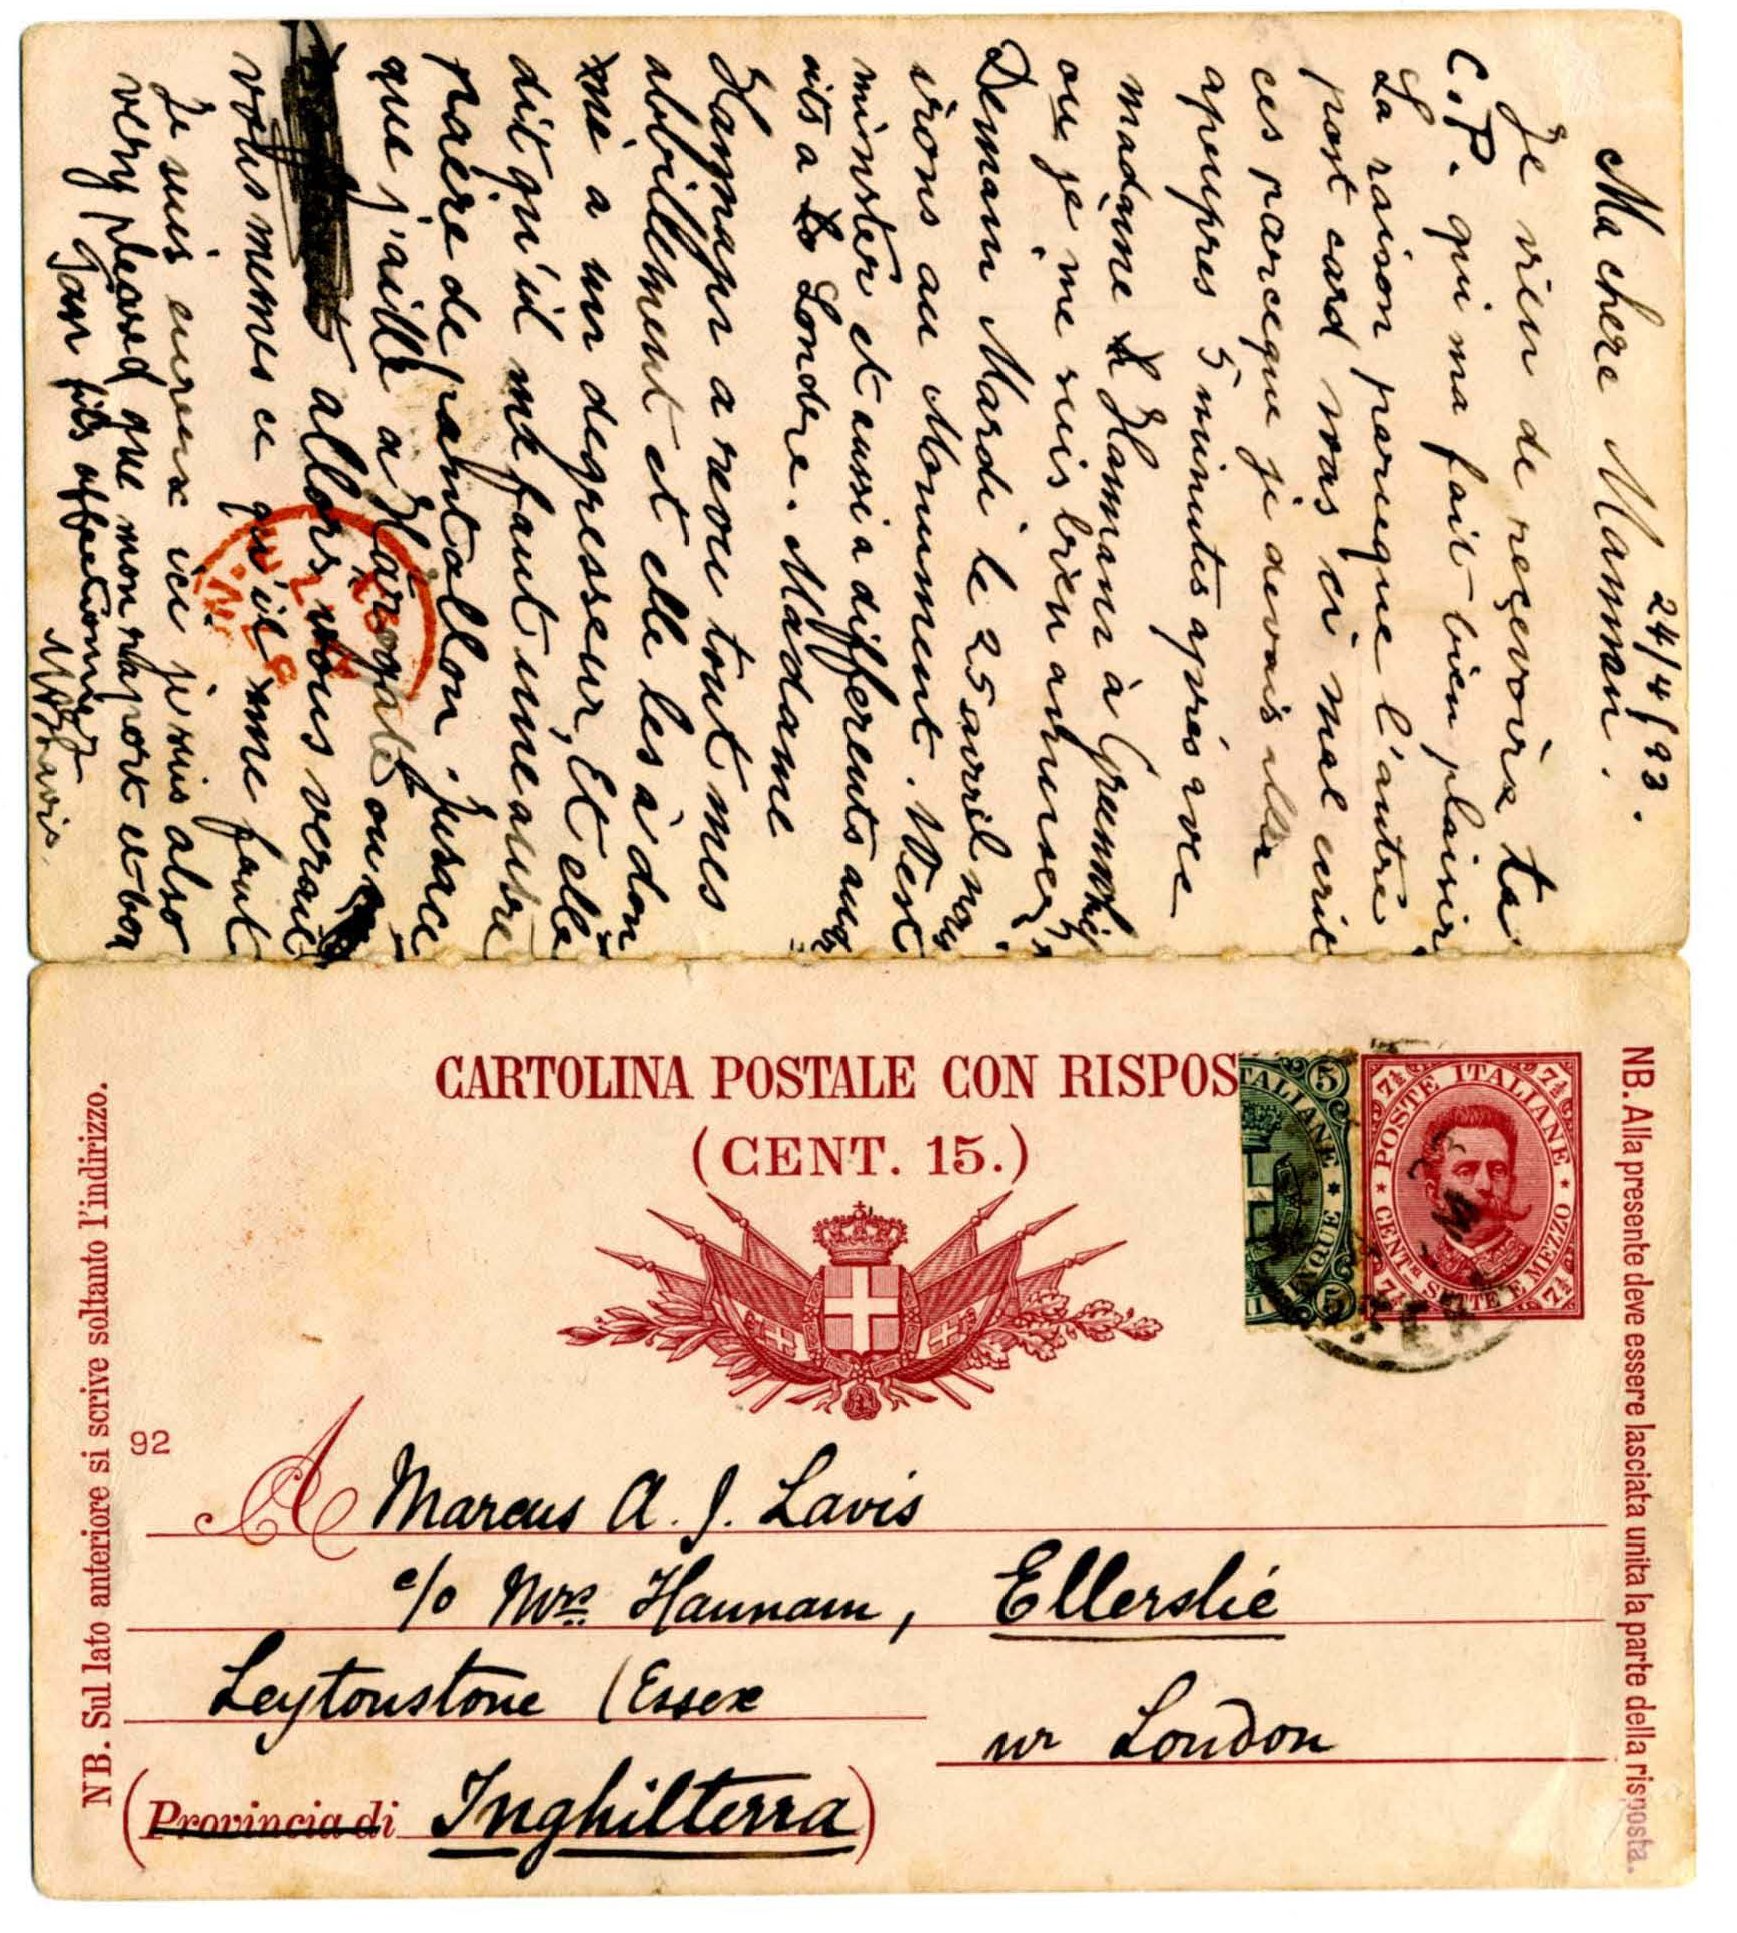 24/4/93.
Ma chere Mamman.
Je vien de reçevoire ta
C.P. qui ma fait bien plaisir.
La raison parceque l'autre
post card vous ci mal ecrit
ces parceque je devais aller
apeupres 5 minutes aprés avec
madame Hannam à
ou je me suis bien amuser,
Demain Mardi le 25 avril nous
irons au Monument. West
minster et aussi a differents andr
oits a Londre. Madame
Hannam a revu tout mes
abbillement et elle les à don
né a un degresseur, Et elle
dit qu'il me faut une autre
paére de pantallon. Jusace
que j'aille a Harogate ou
allors vous verait
vous memes ce qu'il me faut
Je suis eureux ici je suis also
very pleased que mon raport et bon
Ton fils affectioné
M Lavis.
CARTOLINA POSTALE CON RISPOS
(CENT. 15.)
TALIANE
5
INQUE
5
POSTE ITALIANE
7½ 7½
CENT.MI SETTE E MEZZO
7½ 7½
NB. Sul lato anteriore si scrive soltanto l'indirizzo.
NB. Alla presente deve essere lasciata unita la parte della risposta.
92
A Marcus A. J. Lavis
c/o Mrs Hannam, Ellerslie
Leytonstone (Essex
nr London
(Provincia di Inghilterra)